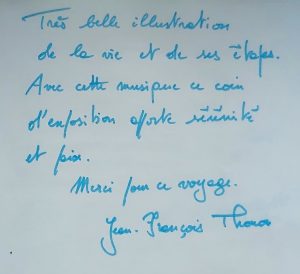 Très belle illustration
de la vie et de ses étapes.
Avec cette musique ce coin
d'exposition apporte sérénité
et paix.
Merci pour ce voyage.
Jean-François